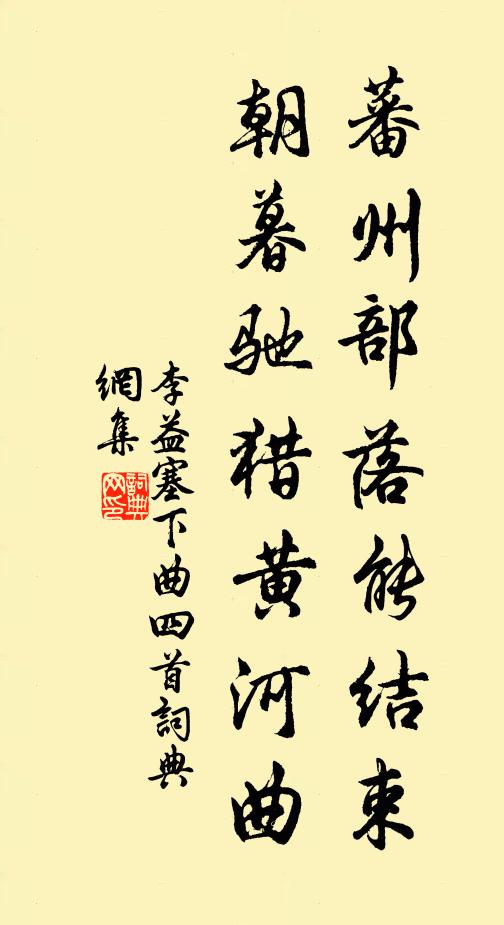 蕃州部落能结束
朝暮驰猎黄河曲
李益塞下曲四首詞典
網集
詞典
网印